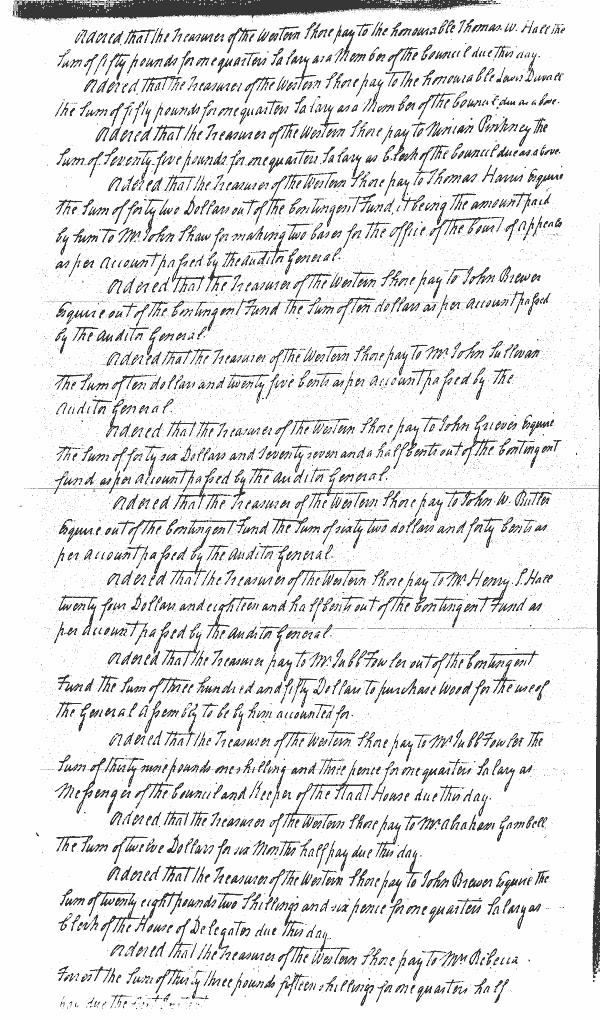 Ordered that the Treasurer of the Western Shore pay to the honourable Thomas W. Hall the
Sum of fifty pounds for one quarters Salary as a Member of the Council due this day.
Ordered, that the Treasurer of the Western Shore pay to the honourable Lewis Duvall
the Sum of fifty pounds for one quarters Salary as a Member of the Council due as above.
Ordered that the Treasurer of the Western Shore pay to Ninian Pinkney the
Sum of Seventy five pounds for one quarters Salary as Clerk of the Council due as above.
Ordered that the Treasurer of the Western Shore pay to Thomas Harris Esquire
the Sum of forty two Dollars out of the Contingent Fund, it being the amount paid
by him to Mr. John Shaw for making two cases for the office of the Court of Appeals
as per Account passed by the Auditor General.
Ordered that the Treasurer of the Western Shore pay to John Brewer
Esquire out of the Contingent Fund the Sum of ten dollars as per Account passed
by the Auditor General.
Ordered that the Treasurer of the Western Shore pay to Mr John Sullivan
the Sum of ten dollars and twenty five Cents as per Account passed by the
Auditor General.
Ordered that the Treasurer of the Western Shore pay to John Grieves Esquire
the Sum of forty six Dollars and Seventy seven and a half Cents out of the Contingent
fund as per Account passed by the Auditor General.
Ordered that the Treasurer of the Western Shore pay to John W. Butler
Esquire out of the Contingent Fund the Sum of sixty two dollars and forty Cents as
per Account passed by the Auditor General.
Ordered that the Treasurer of the Western Shore pay to Mr Henry S. Hall
twenty four Dollars and eighteen and half Cents out of the Contingent Fund as
per Account passed by the Auditor General.
Ordered that the Treasurer pay to Mr Jubb Fowler out of the Contingent
Fund the Sum of three hundred and fifty Dollars to purchase Wood for the use of
the General Assembly to be by him accounted for.
Ordered that the Treasurer of the Western Shore pay to Mr Jubb Fowler the
Sum of thirty nine pounds one shilling and three pence for one quarters Salary as
Messenger of the Council and Keeper of the Stadt House due this day.
Ordered that the Treasurer of the Western Shore pay to Mr Abraham Gambell
the Sum of twelve Dollars for six Months half pay due this day.
Ordered that the Treasurer of the Western Shore pay to John Brewer Esquire the
Sum of twenty eight pounds two Shillings and six pence for one quarters Salary as
Clerk of the House of Delegates due this day.
Ordered that the Treasurer of the Western Shore pay to Mrs Rebecca
Forrest the Sum of thirty three pounds fifteen shillings for one quarters half
pay due the